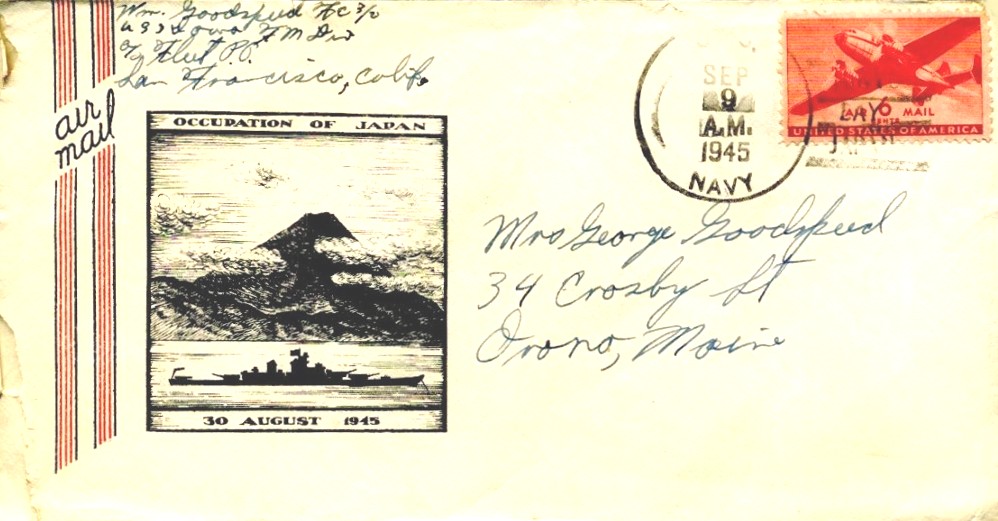 Wm. Goodspeed FC 3/c
USS Iowa FM Div
c/o Fleet P.O.
San Francisco, Calif.
air
mail
OCCUPATION OF JAPAN
30 AUGUST 1945
SEP
9
A.M.
1945
NAVY
AIR 6 MAIL
CENTS
UNITED STATES OF AMERICA
BAY
Mrs George Goodspeed
34 Crosby St
Orono, Maine